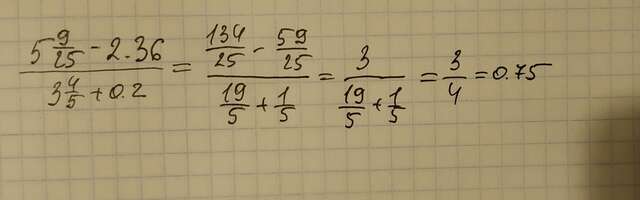 (5 9/25 - 2.36)/(3 4/5 + 0.2) = (134/25 - 59/25)/(19/5 + 1/5) = 3/(19/5 + 1/5) = 3/4 = 0.75